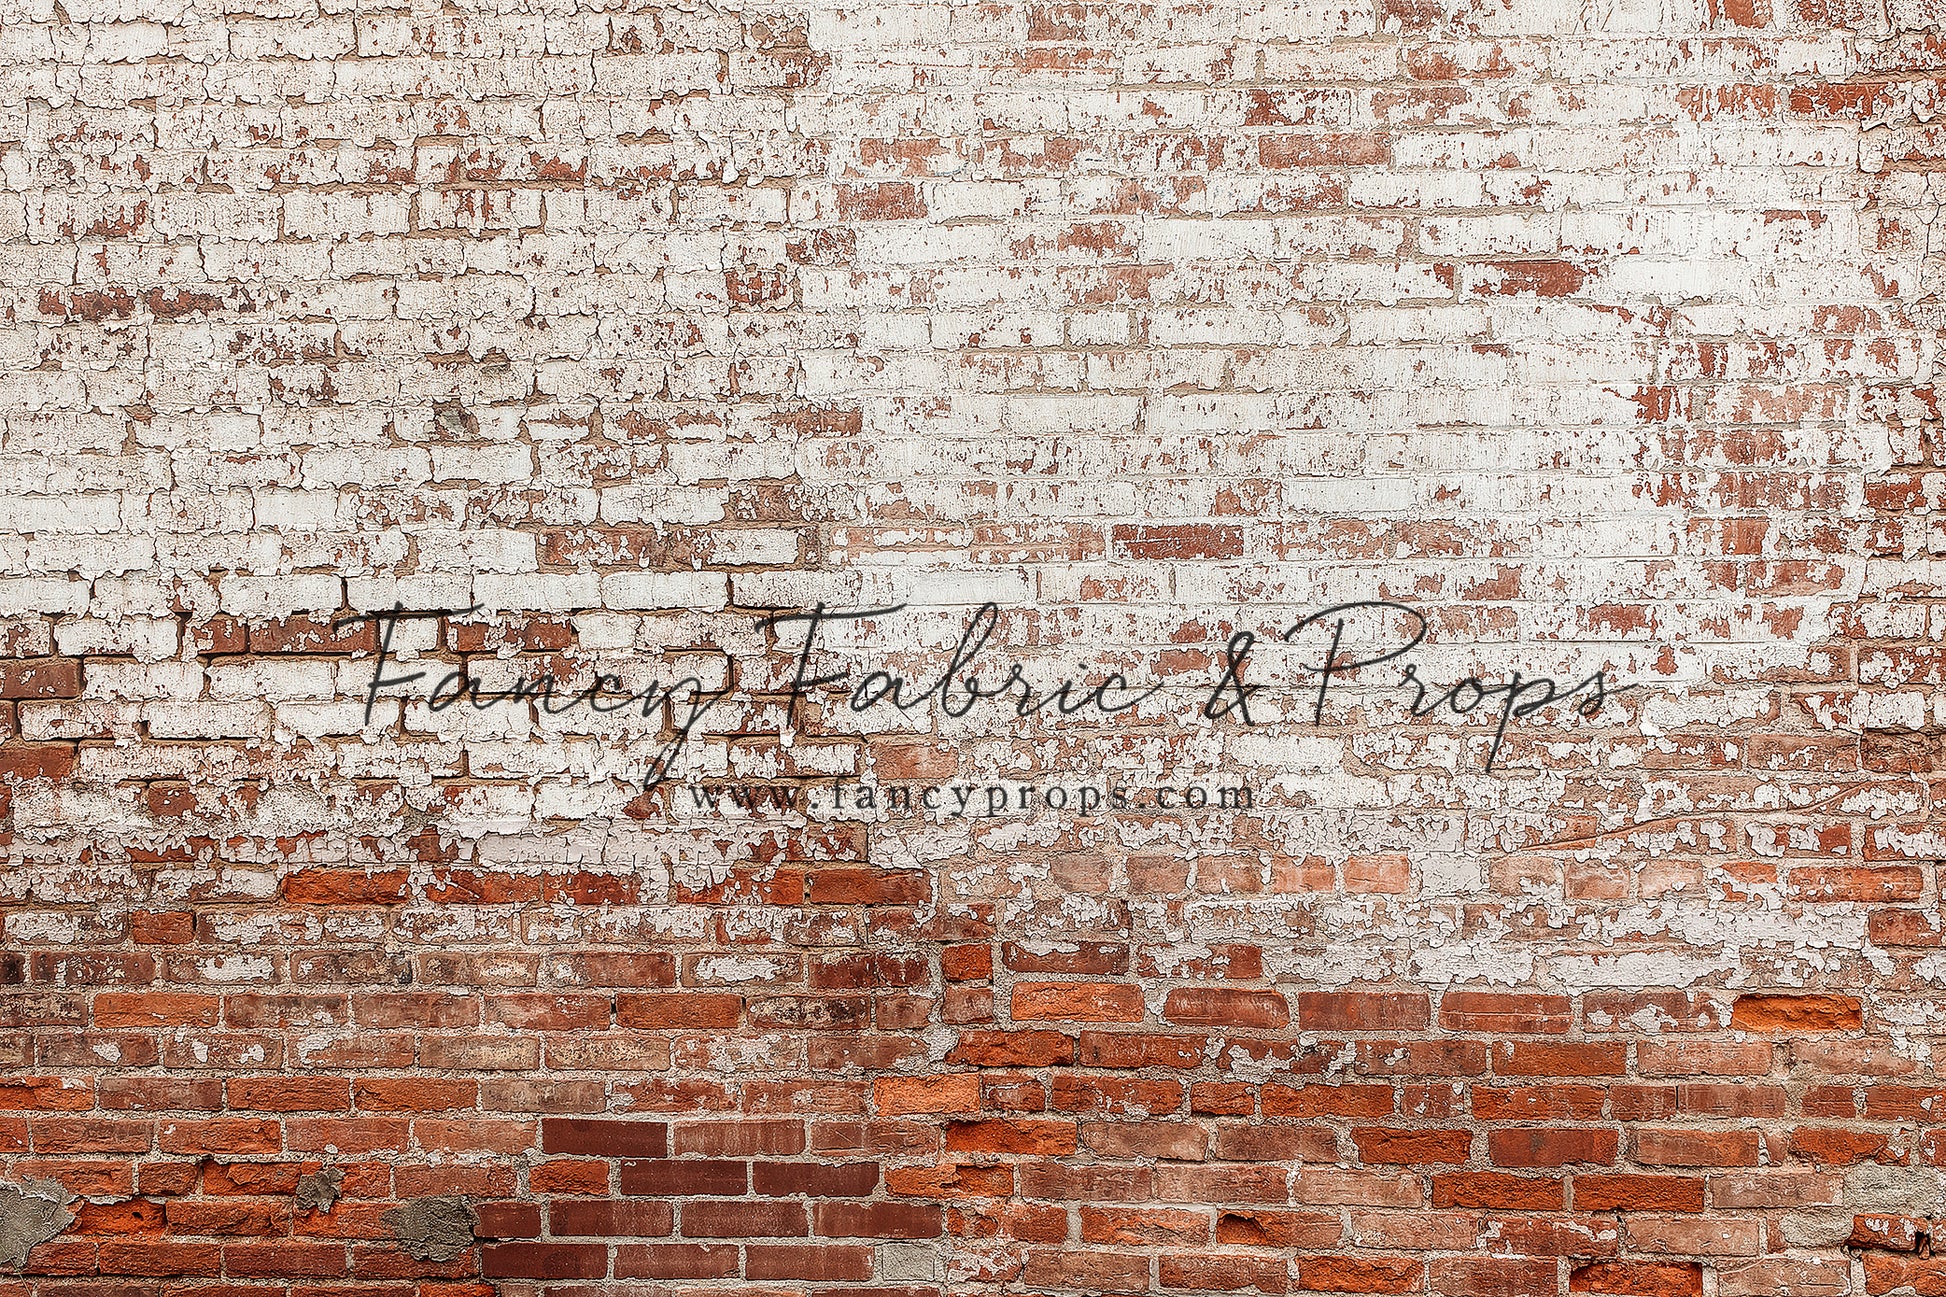 Fancy Fabric & Props
www.fancyprops.com